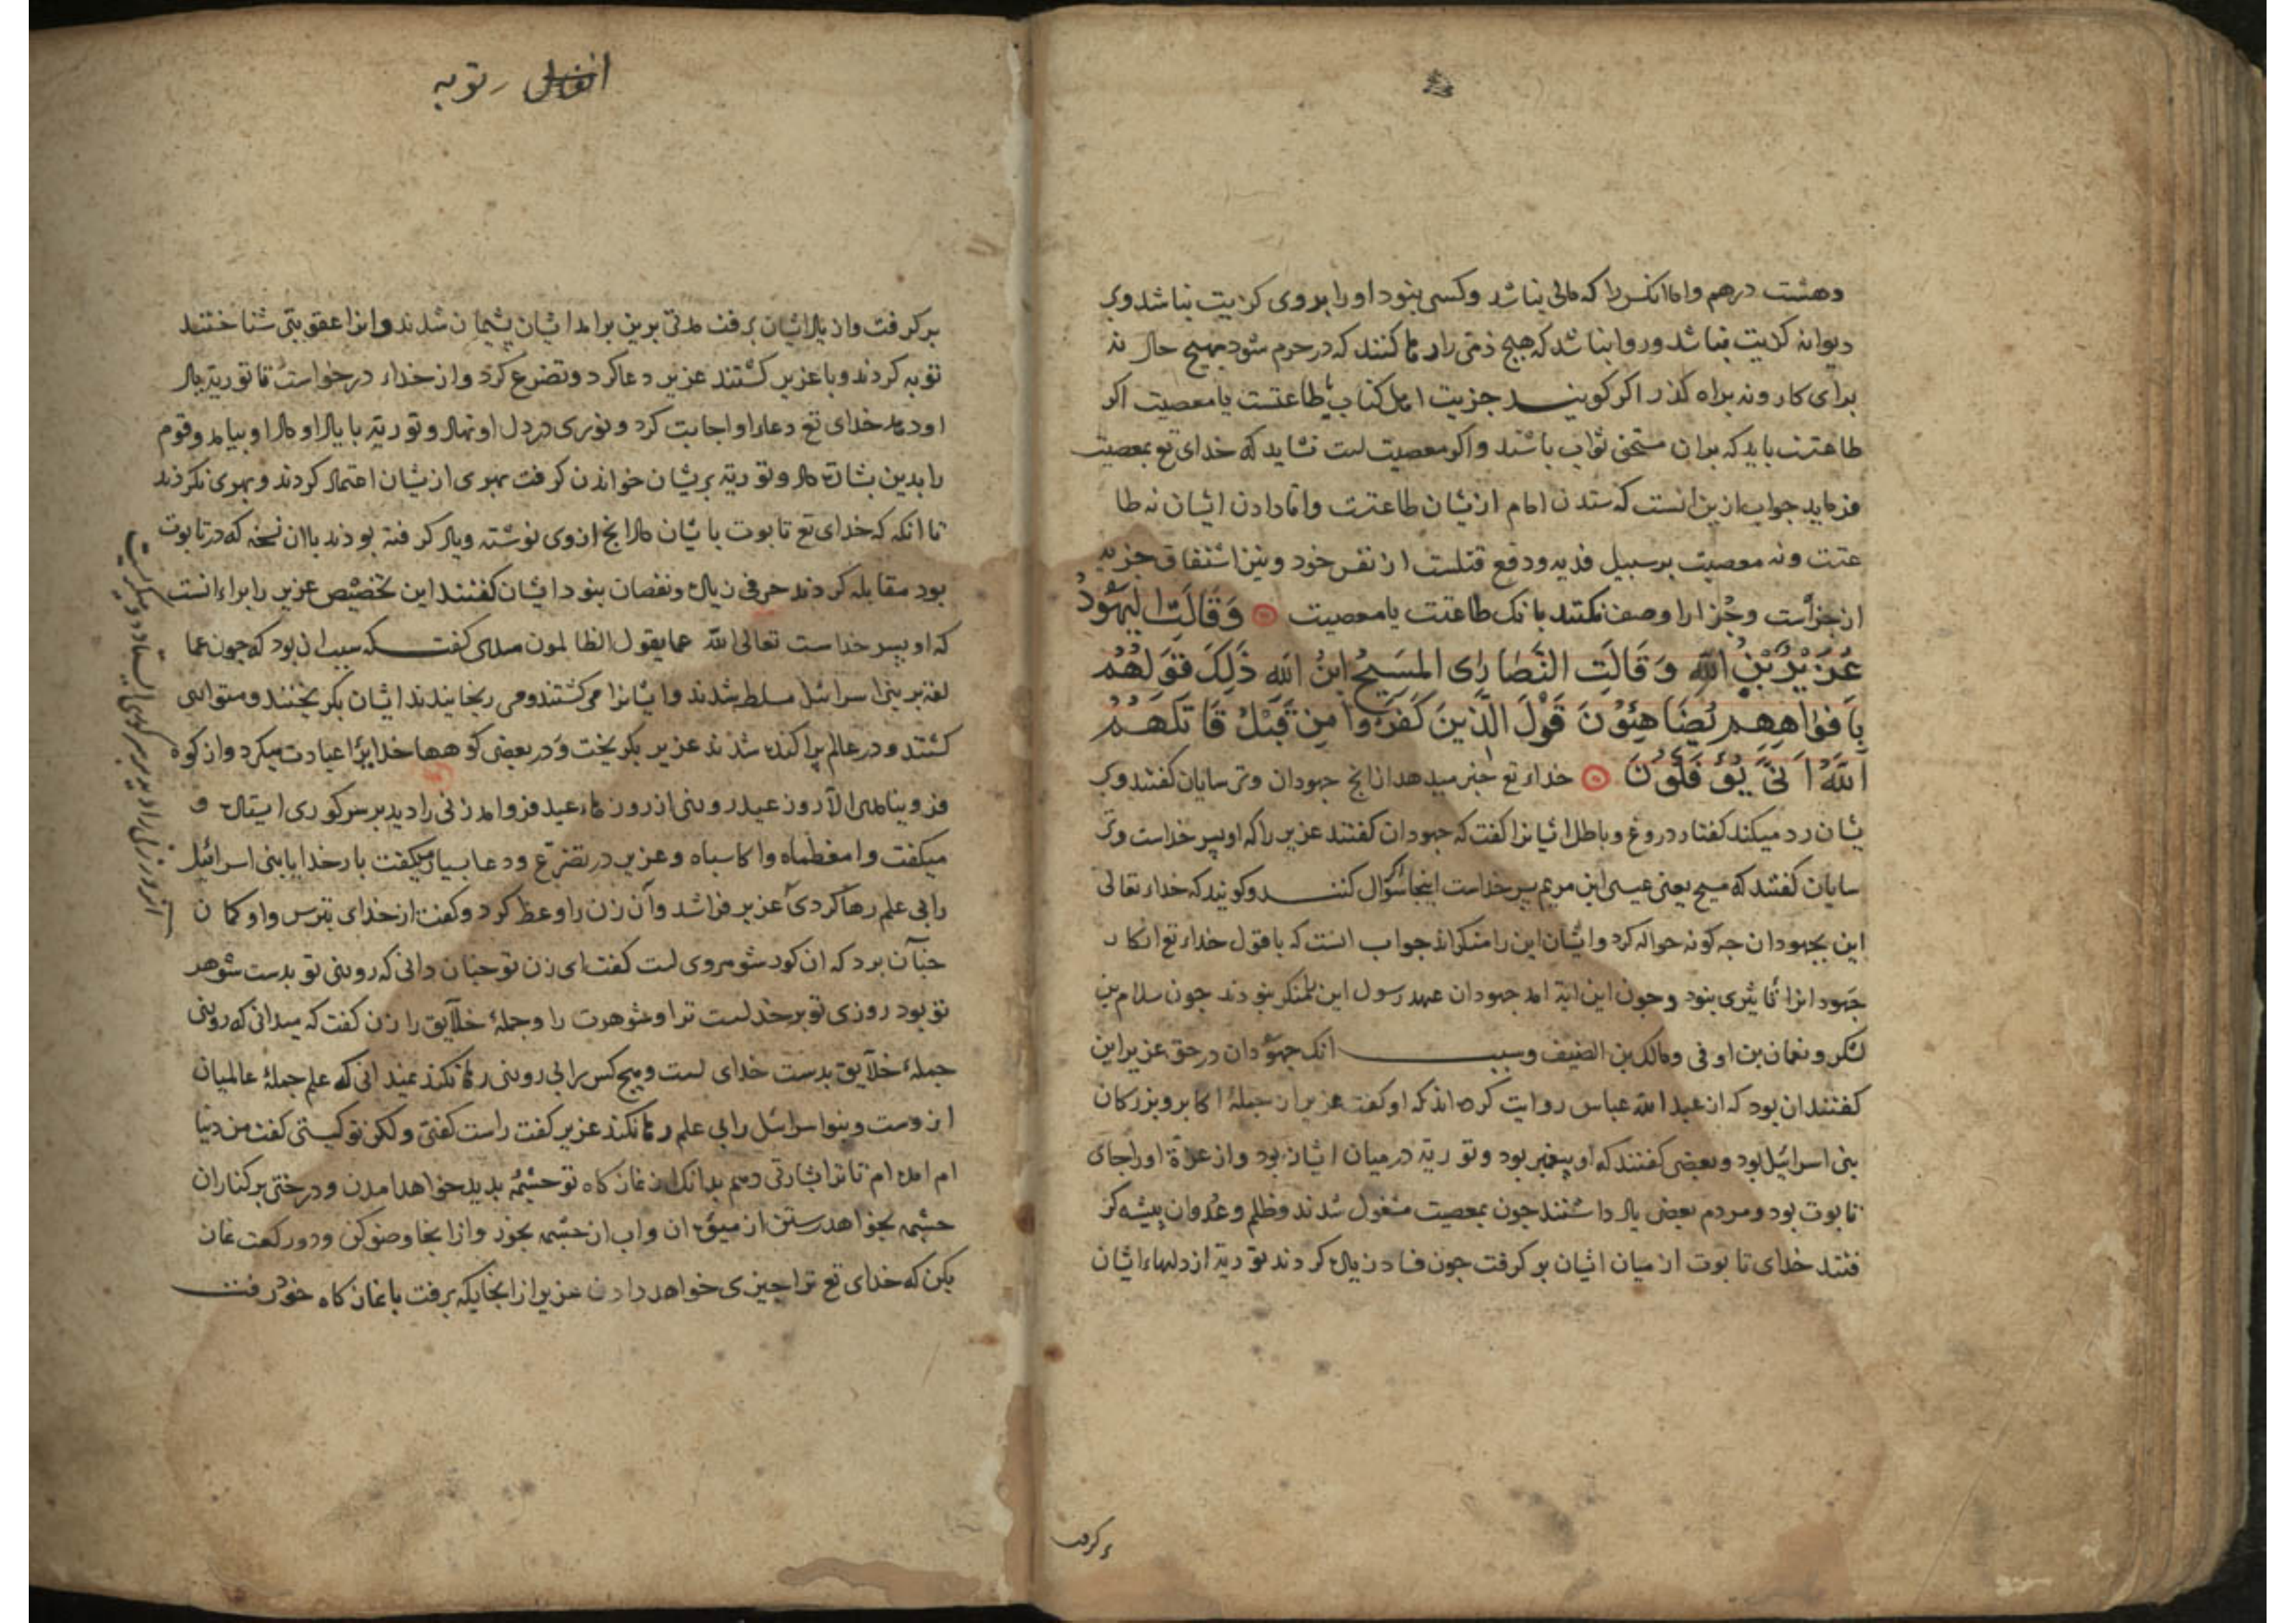 وهشت درهم واما آنکس را که مالی نباشد وکسبی بنود اورا بروی کزیت نباشد وبر
دیوانه کزیت نباشد وروا نباشد که هیچ ذمّی را رها کنند که در حرم شود بهیچ حال نه
برای کار ونه براه کذر اکر کویند جزیت اهل کتاب طاعتست یا معصیت اکر
طاعتست باید که بران مستحق ثواب باشند واکر معصیت است نشاید که خدای تع بمعصیت
فرماید جواب ازین انست که ستدن امام ازیشان طاعتست واما دادن ایشان نه طا
عتت ونه معصیت برسبیل فدیه ودفع قتلست از نفس خود ونیز اشتقاق جزیه
از جزاست وجزا را وصف نکنند بانک طاعتت یا معصیت وَقَالَتِ الیَهُودُ
عُزَیْرٌ بْنُ اللهِ وَقَالَتِ النَّصَارَی المَسیحُ ابنُ اللهِ ذَلِکَ قَوَلُهُمْ
بِاَفوَاهِهِم یُضَاهِئُونَ قَوْلَ الَّذینَ کَفَرُوا مِن قَبْلُ قَاتَلَهُمُ
اللهُ اَنَّی یُؤفَکُونَ خداء تع خبر میدهد از انج جهودان وترسایان کفتند وبر
یشان رد میکند کفتار دروغ وباطل ایشانرا کفت که جهودان کفتند عزیر را که او پسر خداست وتر
سایان کفتند که مسیح یعنی عیسی ابن مریم پسر خداست اینجا سؤال کنند وکویند که خداء تعالی
این بجهودان چه کونه حواله کرد وایشان این را منکراند جواب انست که با قول خداء تع انکار
جهودانرا تاثیری بنود وچون این ایة امد جهودان عهد رسول این را منکر بنودند چون سلام بن
شکر ونعمان بن اوفی ومالک بن الضیف وسبب انک جهودان در حق عزیر این
کفتند ان بود که از عبد الله عباس روایت کرده اند که او کفت عزیر از جملۀ اکابر وبزرکان
بنی اسرائیل بود وبعضی کفتند که او پیغمبر بود وتوریة در میان ایشان بود وازعزّة اورا جای
تابوت بود ومردم بعضی یاد داشتند چون بمعصیت مشغول شدند وظلم وعدوان پیشه کر
فتند خدای تابوت از میان ایشان بر کرفت چون فساد زیادة کردند توریة از دلهاء ایشان
انفال توبه
بر کرفت واز یاد ایشان برفت مدتی برین برامد ایشان پشیمان شدند وانرا عقوبتی شناختند
توبه کردند وبا عزیر کشتند عزیر دعا کرد وتضرع کرد واز خداء درخواست تا توریة یاد
او دهد خدای تع دعاء او اجابت کرد ونوری در دل او نهاد وتوریة با یاد او داد او بیامد وقوم
را بدین بشارت داد وتوریة بریشان خواندن کرفت بهری ازیشان اعتماد کردند وبهری نکردند
تا انکه که خدای تع تابوت با یشان داد انج از وی نوشته ویاد کرفته بودند با ان نسخه که در تابوت
بود مقابله کردند حرفی زیادة ونقصان بنود ایشان کفتند این تخصیص عزیر را براء انست
که او پسر خداست تعالی الله عما یقول الظالمون سدی کفت که سبب ان بود که چون عما
لقه بر بنی اسرائیل مسلط شدند وایشانرا می کشتند ومی رنجانیدند ایشان بکریختند ومتواری
کشتند ودر عالم پراکنده شدند عزیر بکریخت ودر بعضی کوهها خدایرا عبادت میکرد واز کوه
فرو نیامدی الا روز عید روزی از روزهاء عید فرو امد زنی را دید بر سر کوری ایستاده و
میکفت وا مطعماه وا کاسیاه وعزیر در تضرّع ودعا بسیار میکفت بار خدایا بنی اسرائیل
را بی علم رها کردی عزیر فرا شد وآن زن را وعظ کرد وکفت از خدای بترس واو کمان
چنان برد که ان کور شوهر وی است کفت ای زن تو چنان دانی که روزی تو بدست شوهر
تو بود روزی تو بر خداست ترا وشوهرت را وجملۀ خلایق را زن کفت که میدانی که روزی
جملۀ خلایق بدست خدای است وهیچ کس را بی روزی رها نکند نمیدانی که علم جملۀ عالمیان
ازوست وبنو اسرائیل را بی علم رها نکند عزیر کفت راست کفتی ولکن تو کیستی کفت من دنیا
ام امده ام تا ترا بشارتی دهم بدانک در نماز کاه تو چشمۀ پدید خواهد امدن ودرختی بر کنار ان
چشمه بخواهد رستن از میوۀ ان واب ان چشمه بخور وازانجا وضو کن ودو رکعت نماز
بکن که خدای تع ترا چیزی خواهد دادن عزیر از انجایکه برفت با نماز کاه خود رفت